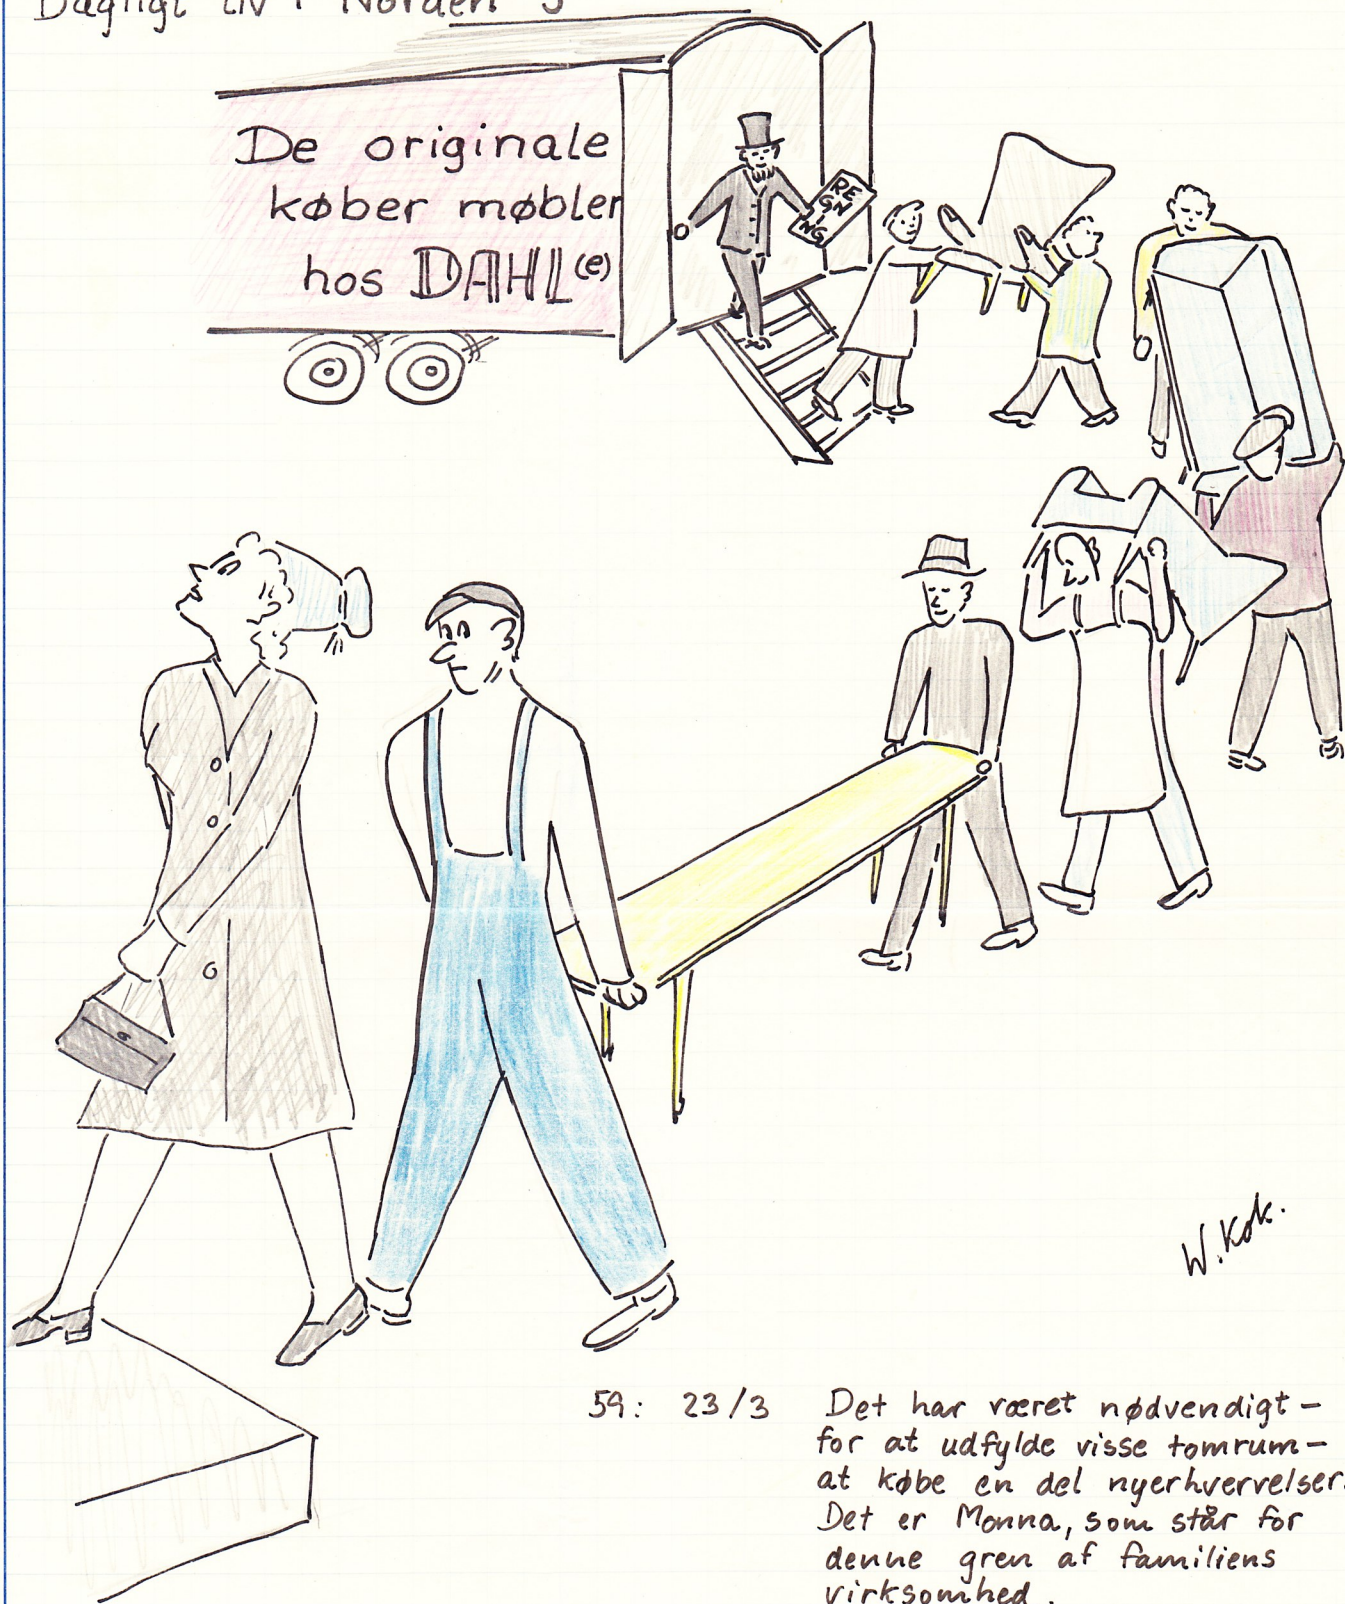 Dagligt liv i Norden 5
De originale
køber møbler
hos DAHL(e)
RE
GN
ING
W. Kok.
59: 23/3 Det har været nødvendigt –
for at udfylde visse tomrum –
at købe en del nyerhvervelser.
Det er Monna, som står for
denne gren af familiens
virksomhed.